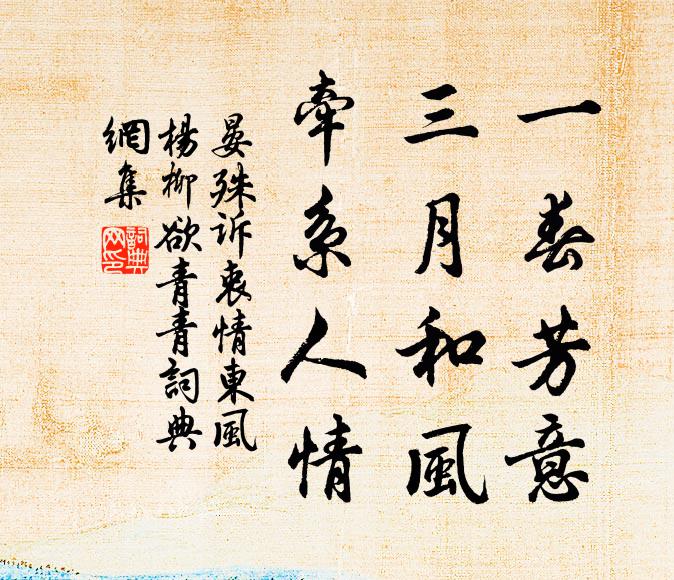 一春芳意
三月和風
牽系人情
晏殊诉衷情東風
楊柳欲青青詞典
網集
詞典
网印